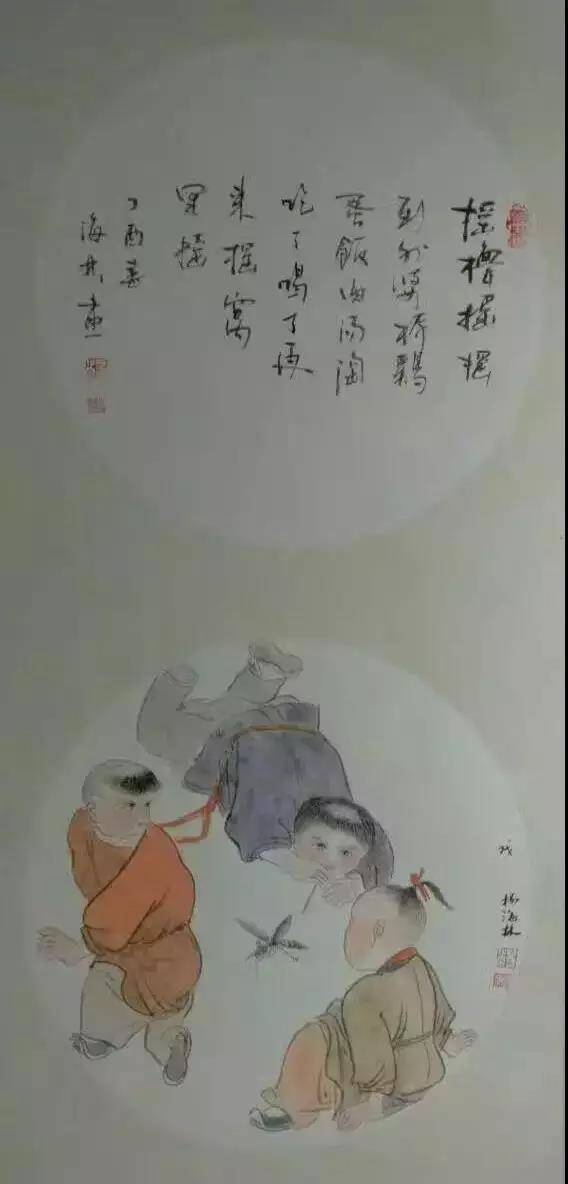 摇橹摇摇
到外婆桥鸡
蛋飯肉汤陶
吃了喝了便
来摇窝
里摇
丁酉春
海林画
戏
杨海林